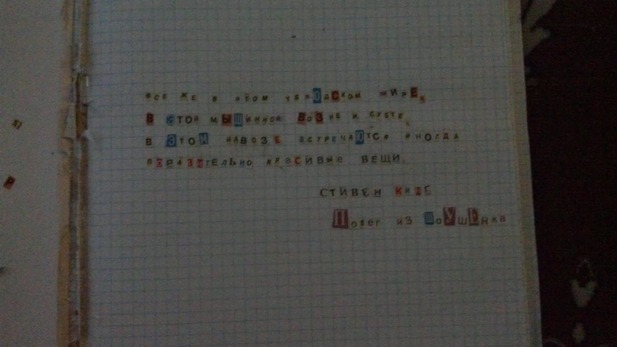 все же в этом уродском мире,
в этой мышиной возне и суете,
в этом навозе встречаются иногда
поразительно красивые вещи.
Стивен Кинг
Побег из Шоушенка